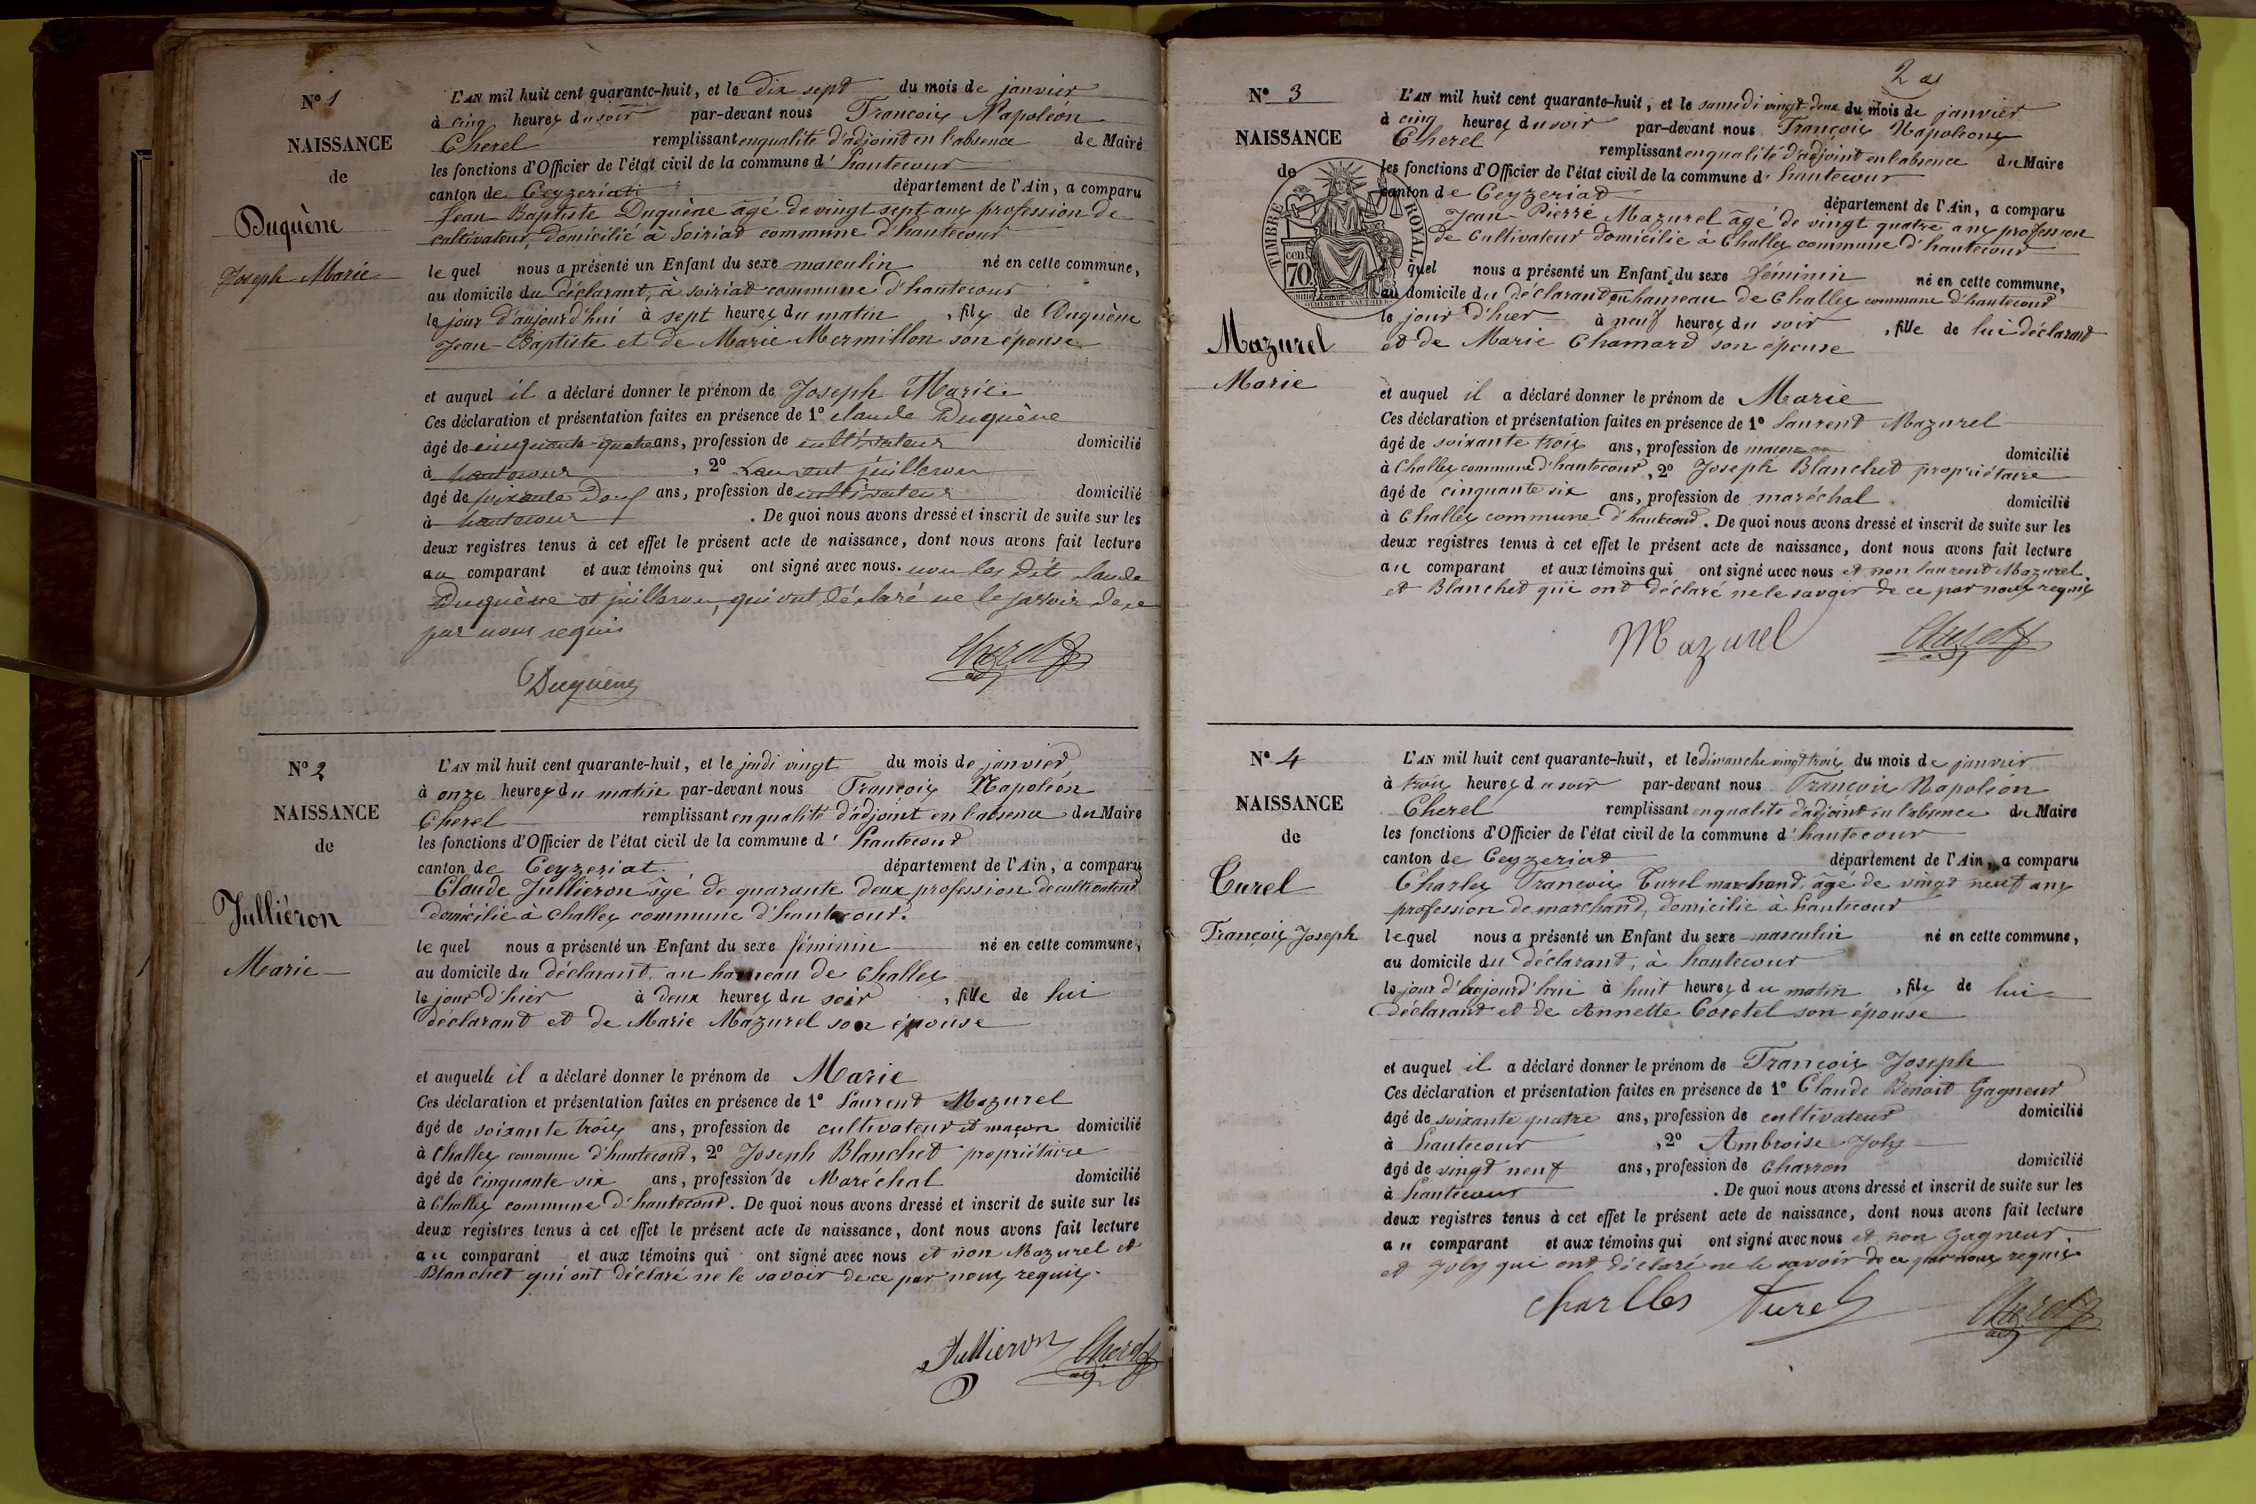 N° 1
NAISSANCE
de
Duquène
Joseph Marie
L'AN mil huit cent quarante-huit, et le dix sept du mois de janvier
à cinq heures du soir par-devant nous François Napoléon
Cherel remplissant en qualité d'adjoint en l'absence de Maire
les fonctions d'Officier de l'état civil de la commune d'hautecour
canton de Ceyzeriat département de l'Ain, a comparu
Jean-Baptiste Duquène âgé de vingt sept ans profession de
cultivateur, domicilié à Soiriat commune d'hautecour
lequel nous a présenté un Enfant du sexe masculin né en cette commune,
au domicile du déclarant, à soiriat commune d'hautecour
le jour d'aujourd'hui à sept heures du matin, fils de Duquène
Jean-Baptiste et de Marie Mermillon son épouse
et auquel il a déclaré donner le prénom de Joseph Marie
Ces déclaration et présentation faites en présence de 1° claude Duquène
âgé de cinquante-quatre ans, profession de cultivateur domicilié
à hautecour, 2° Laurent juilleron
âgé de soixante Douf ans, profession de cultivateur domicilié
à hautecour. De quoi nous avons dressé et inscrit de suite sur les
deux registres tenus à cet effet le présent acte de naissance, dont nous avons fait lecture
au comparant et aux témoins qui ont signé avec nous. non les dits claude
Duquène et juilleron, qui ont déclaré ne le savoir de ce
par nous requis
Duquène
Cherel
adj
N° 2
NAISSANCE
de
Julliéron
Marie
L'AN mil huit cent quarante-huit, et le jeudi vingt du mois de janvier
à onze heures du matin par-devant nous François Napoléon
Cherel remplissant en qualité d'adjoint en l'absence du Maire
les fonctions d'Officier de l'état civil de la commune d'hautecour
canton de Ceyzeriat département de l'Ain, a comparu
Claude Jullieron âgé de quarante deux profession de cultivateur
domicilié à challes commune d'hautecour.
lequel nous a présenté un Enfant du sexe féminin né en cette commune,
au domicile du déclarant au hameau de challes
le jour d'hier à deux heures du soir, fille de lui
déclarant et de Marie Mazurel son épouse
et auquelle il a déclaré donner le prénom de Marie
Ces déclaration et présentation faites en présence de 1° Laurent Mazurel
âgé de soixante trois ans, profession de cultivateur et maçon domicilié
à challes commune d'hautecour, 2° Joseph Blanchet propriétaire
âgé de cinquante six ans, profession de Maréchal domicilié
à Challes commune d'hautecour. De quoi nous avons dressé et inscrit de suite sur les
deux registres tenus à cet effet le présent acte de naissance, dont nous avons fait lecture
au comparant et aux témoins qui ont signé avec nous et non Mazurel et
Blanchet qui ont déclaré ne le savoir de ce par nous requis.
Jullieron Cherel
adj
2
N° 3
NAISSANCE
de
TIMBRE ROYAL
70 cen
Mazurel
Marie
L'AN mil huit cent quarante-huit, et le samedi vingt deux du mois de janvier
à cinq heures du soir par-devant nous François Napoléon
Cherel remplissant en qualité d'adjoint en l'absence du Maire
les fonctions d'Officier de l'état civil de la commune d'hautecour
canton de Ceyzeriat département de l'Ain, a comparu
Jean-Pierre Mazurel âgé de vingt quatre ans profession
de Cultivateur domicilié à Challes commune d'hautecour
quel nous a présenté un Enfant du sexe féminin né en cette commune,
au domicile du déclarant au hameau de challes commune d'hautecour
le jour d'hier à neuf heures du soir, fille de lui déclarant
et de Marie Chamard son épouse
et auquel il a déclaré donner le prénom de Marie
Ces déclaration et présentation faites en présence de 1° Laurent Mazurel
âgé de soixante trois ans, profession de maçon domicilié
à Challes commune d'hautecour, 2° Joseph Blanchet propriétaire
âgé de cinquante six ans, profession de maréchal domicilié
à Challes commune d'hautecour. De quoi nous avons dressé et inscrit de suite sur les
deux registres tenus à cet effet le présent acte de naissance, dont nous avons fait lecture
au comparant et aux témoins qui ont signé avec nous et non laurent Mazurel
et Blanchet qui ont déclaré ne le savoir de ce par nous requis
Mazurel Cherel
adj
N° 4
NAISSANCE
de
Turel
François Joseph
L'AN mil huit cent quarante-huit, et le dimanche vingt trois du mois de janvier
à trois heures du soir par-devant nous François Napoléon
Cherel remplissant en qualité d'adjoint en l'absence du Maire
les fonctions d'Officier de l'état civil de la commune d'hautecour
canton de Ceyzeriat département de l'Ain, a comparu
Charles François Turel marchand, âgé de vingt neuf ans
profession de marchand, domicilié à hautecour
lequel nous a présenté un Enfant du sexe masculin né en cette commune,
au domicile du déclarant, à hautecour
le jour d'aujourd'hui à huit heures du matin, fils de lui
déclarant et de Annette Coretel son épouse
et auquel il a déclaré donner le prénom de François Joseph
Ces déclaration et présentation faites en présence de 1° Claude Benoit Gagneur
âgé de soixante quatre ans, profession de cultivateur domicilié
à hautecour, 2° Ambroise Joly
âgé de vingt neuf ans, profession de charron domicilié
à hautecour. De quoi nous avons dressé et inscrit de suite sur les
deux registres tenus à cet effet le présent acte de naissance, dont nous avons fait lecture
au comparant et aux témoins qui ont signé avec nous et non Gagneur,
et Joly qui ont déclaré ne le savoir de ce par nous requis
charlles turel Cherel
adj